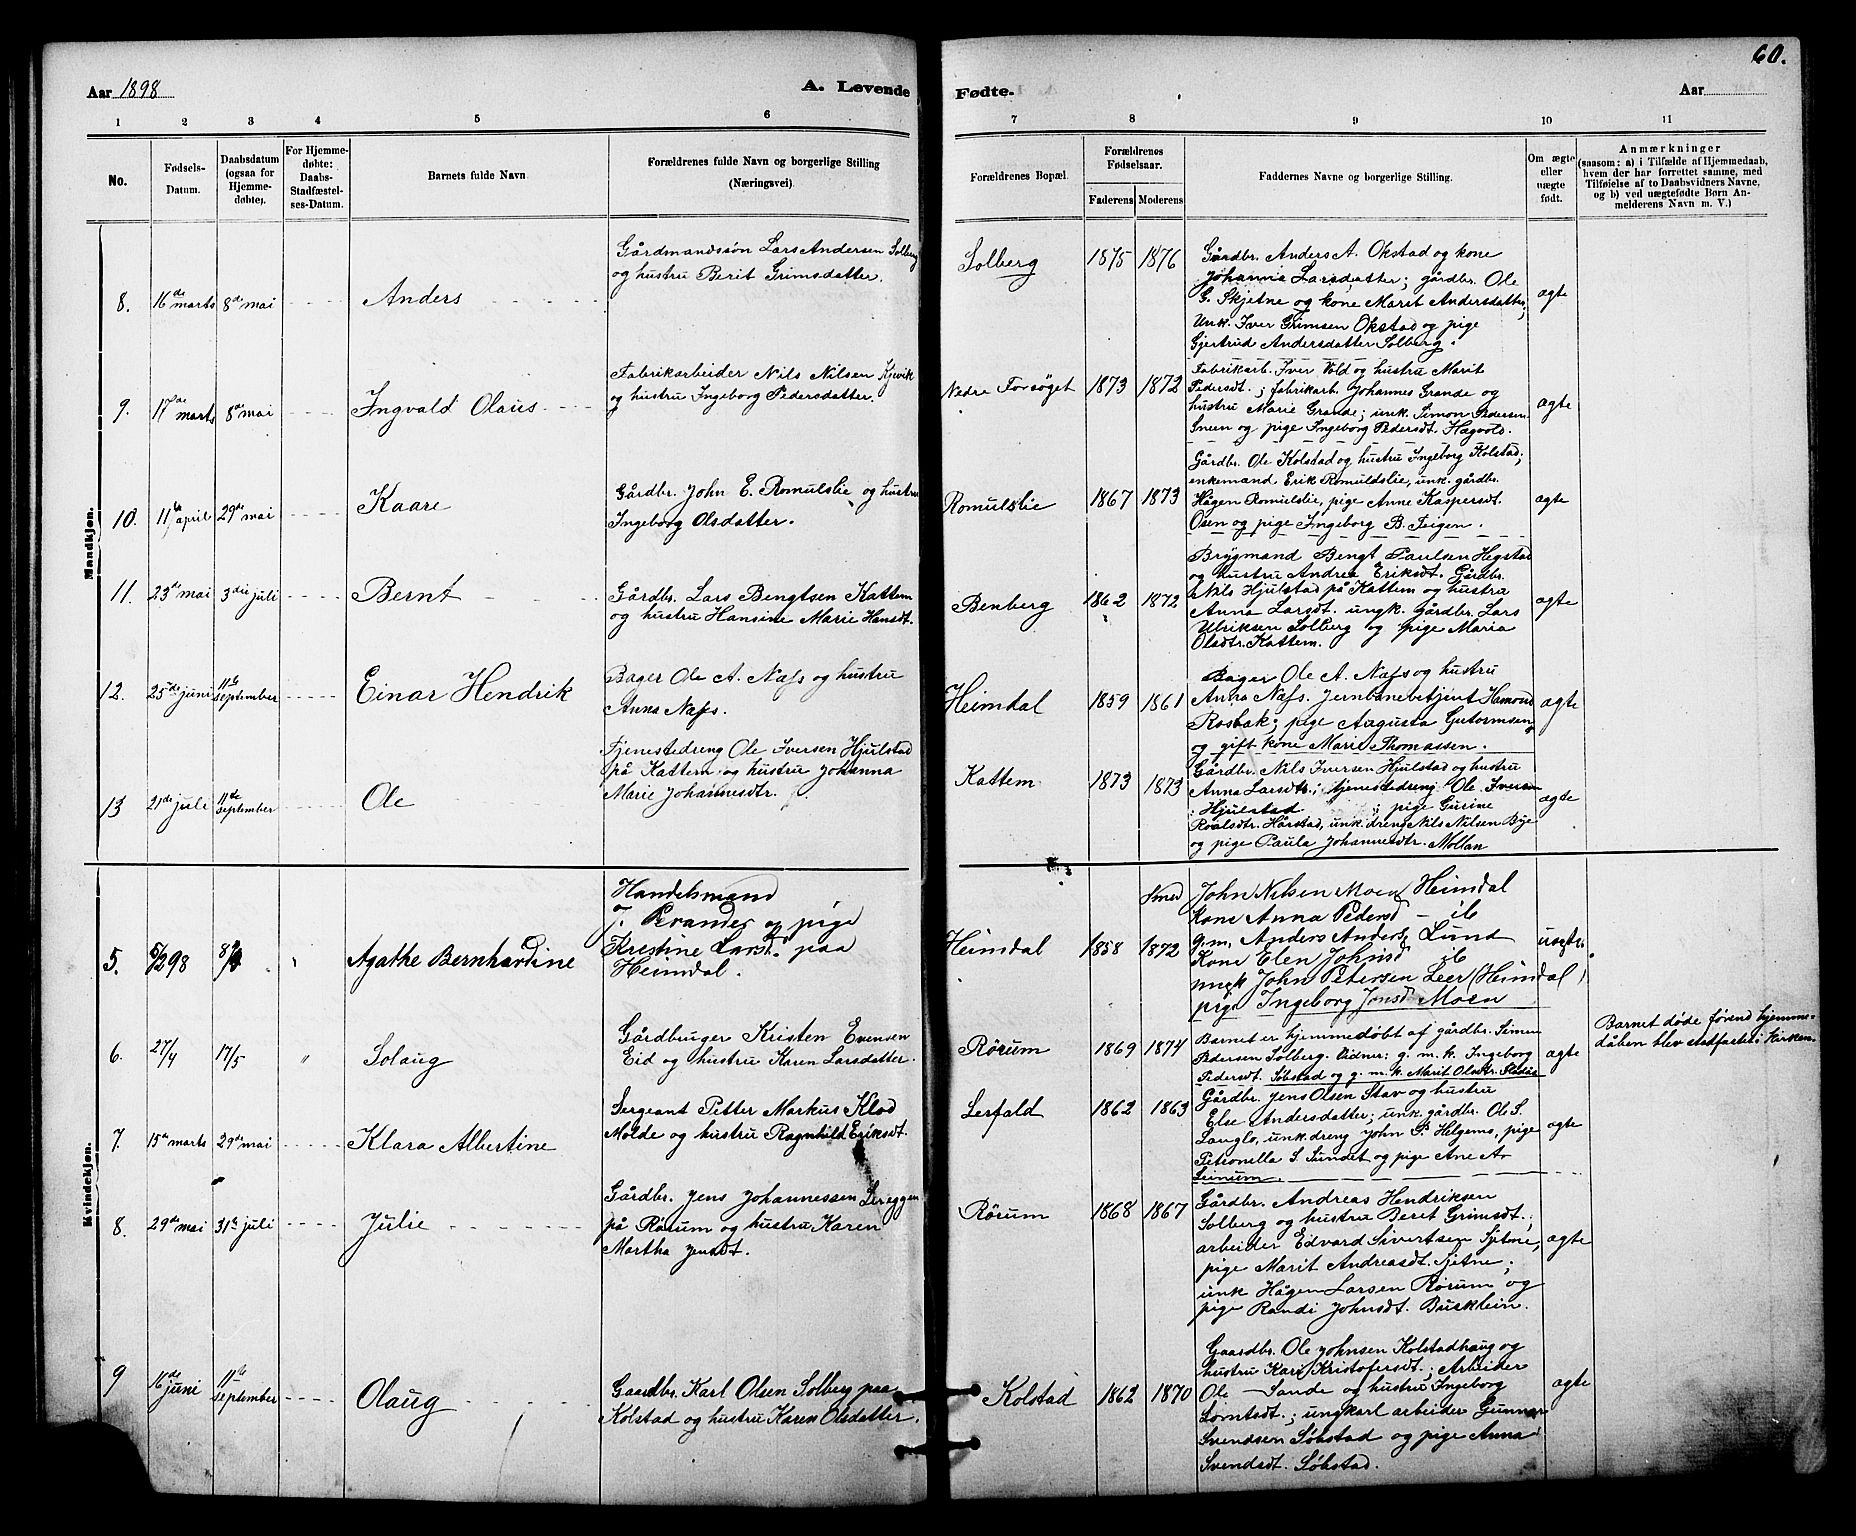 60.
Aar 1898
A. Levende Fødte.
Aar
1 2 3 4 5 6 7 8 9 10 11
No.
Fødsels-Datum.
Daabsdatum (ogsaa for Hjemmedøbte).
For Hjemmedøbte: Daabs-Stadfæstelses-Datum.
Barnets fulde Navn
Forældrenes fulde Navn og borgerlige Stilling (Næringsvei)
Forældrenes Bopæl.
Forældrenes Fødselsaar.
Faderens Moderens
Faddernes Navne og borgerlige Stilling.
Om ægte eller uægte født.
Anmærkninger
(saasom: a) i Tilfælde af Hjemmedaab, hvem der har forrettet samme, med Tilføielse af to Daabsvidners Navne, og b) ved uægtefødte Børn Anmelderens Navn m. V.)
Mandkjøn.
8. 16de marts 8de mai Anders
Gårdmandssøn Lars Andersen Solberg
og hustru Berit Grimsdatter.
Solberg 1875 1876
Gårdbr. Anders A. Okstad og kone
Johanna Larsdatter; gårdbr. Ole
G. Skjetne og kone Marit Andersdatter;
Unk. Iver Grimsen Okstad og pige
Gjertrud Andersdatter Solberg.
ægte
9. 17de marts 8de mai Ingvald Olaus
Fabrikarbeider Nils Nilsen Kjevik
og hustru Ingeborg Pedersdatter.
Nedre Forsøget 1873 1872
Fabrikarb. Iver Vold og hustru Marit
Pedersdt.; fabrikarb. Johannes Grande og
hustru Marie Grande; unk. Simon Pedersen
og pige Ingeborg Pedersdt. Hagvold.
ægte
10. 11te april 29de mai Kaare
Gårdbr. John E. Romulslie og hustru
Ingeborg Olsdatter.
Romulslie 1867 1873
Gårdbr. Ole Kolstad og hustru Ingeborg Kolstad;
enkemand Erik Romuldslie, unk. gårdbr.
Hågen Romulslie, pige Anne Kaspersdt.
Osen og pige Ingeborg B. Teigen.
ægte
11. 23de mai 3die juli Bernt
Gårdbr. Lars Bengtsen Kattem
og hustru Hansine Marie Hansdt.
Benberg 1862 1872
Brygmand Bengt Paulsen Hegstad
og hustru Andrea Eriksdt. Gårdbr.
Nils Hjulstad på Kattem og hustru
Anna Larsdt. ungk. gårdbr. Lars
Ulriksen Solberg og pige Maria
Olsdtr. Kattem.
ægte
12. 25de juni 11te september Einar Hendrik
Bager Ole A. Næss og hustru
Anna Næss.
Heimdal 1859 1861
Bager Ole A. Næss og hustru
Anna Næss. Jernbanebetjent
Rosbak; pige Augusta Gutormsen
og gift kone Marie Thomassen.
ægte
13 21de juli 11te september Ole
Tjenestedreng Ole Iversen Hjulstad
på Kattem og hustru Johanna
Marie Johannesdtr.
Kattem 1873 1873
Gårdbr. Nils Iversen Hjulstad og hustru
Anna Larsdtr.; tjenestedreng Ole Iversen
Hjulstad; pige Gurine
Roaldsdtr. Hårstad, unk. dreng Nils Nilsen Bye
og pige Paula Johannesdtr. Mollan
ægte
Kvindekjøn.
5. 5/2 98 Agathe Bernhardine
Handelsmand
J. Perander og pige
Kristine Larsdt. paa
Heimdal.
Heimdal 1858 1872
Smed John Nilsen Moen Heimdal
Kone Anna Pedersd — ib
g.m. Anders Anders. Lund
Kone Elen Johnsd ib
ungk John Petersen Leer (Heimdal)
pige Ingeborg Jonsd Moen
uægte
6. 27/4 17/5 " Solaug
Gårdbruger Kristen Evensen
Eid og hustru Karen Larsdatter.
Rørum 1869 1874
Barnet er hjemmedøbt af gårdbr. Simen
Pedersen Solberg. Vidner: g. m. k. Ingeborg
Pedersdt. Søbstad og g. m. k. Marit Olsdtr.
ægte
Barnet døde førend hjemmedåben blev stadfæstet i Kirken.
7. 15de marts 29de mai Klara Albertine
Sergeant Petter Markus Klod
Molde og hustru Ragnhild Eriksdt.
Lerfald 1862 1863
Gårdbr. Jens Olsen Stav og hustru
Else Andersdatter; unk. gårdbr. Ole S.
Langlo, unk. dreng John P. Helgemo, pige
Petronella S. Sundet og pige Ane A.
Leinum.
ægte
8. 29de mai 31te juli Julie
Gårdbr. Jens Johannessen Lereggen
på Rørum og hustru Karen
Martha Jensdt.
Rørum 1868 1867
Gårdbr. Andreas Hendriksen
Solberg og hustru Berit Grimsdt.;
arbeider Edvard Sivertsen Sjetne,
pige Marit Andreasdt. Sjetne;
unk Hågen Larsen Rørum og
pige Randi Johnsdt. Busklein.
ægte
9 16de juni 11te september Olaug
Gaardbr. Karl Olsen Solberg paa
Kolstad og hustru Karen Olsdatter.
Kolstad 1862 1870
Gaardbr. Ole Johnsen Kolstadhaug og
hustru Kari Kristofersdt.; Arbeider
Ole — Sande og hustru Ingeborg
; ungkarl arbeider Gunnar
Svendsen Søbstad og pige Anna
Svendsdt. Søbstad.
ægte